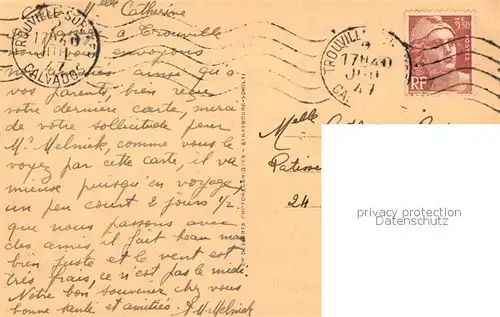 Melle Catherine
TROUVILLE-SUR-MER
17H40
47
CALVADOS
à Trouville
nous vous envoyons
ainsi qu'à
vos parents, bien reçu
votre dernière carte, merci
de votre sollicitude pour
Mr Melnick, comme vous le
voyez par cette carte, il va
mieuse puisqu'en voyage,
un peu court 2 jours 1/2
que nous passons avec
des amis, il fait beau mais
bien juste et le vent est
très frais, ce n'est pas le midi.
Notre bon souvenir chez vous
bonne santé et amitiés. M. Melnick
TROUVILLE
17H40
47
CA
RF
POSTES
3F50
Melle
Patisse
24
privacy protection
watermark